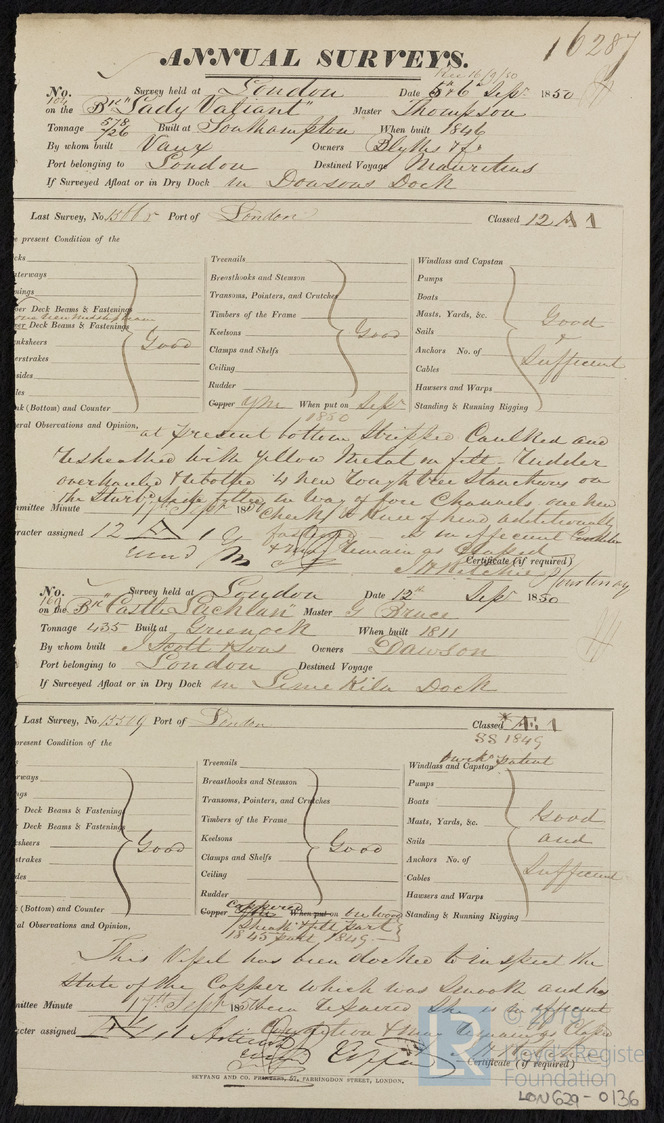 16287
ANNUAL SURVEYS.
Rec 16/9/50
No. 104 Survey held at London Date 5th & 6th Sepr 1850
on the Bk "Lady Valiant" Master Thompson
Tonnage 578/726 Built at Southampton When built 1846
By whom built Vaux Owners Blyths &
Port belonging to London Destined Voyage Mauritius
If Surveyed Afloat or in Dry Dock in Dowsons Dock
Last Survey, No. 15665 Port of London Classed 12 A 1
e present Condition of the
cks
terways
mings
per Deck Beams & Fastenings
one new midship beam
wer Deck Beams & Fastenings
nksheers
erstrakes
sides
les
nk (Bottom) and Counter
Good
Treenails
Breasthooks and Stemson
Transoms, Pointers, and Crutches
Timbers of the Frame
Keelsons
Clamps and Shelfs
Ceiling
Rudder
Good
Copper YM When put on Sepr 1850
Windlass and Capstan
Pumps
Boats
Masts, Yards, &c.
Sails
Anchors No. of
Cables
Hawsers and Warps
Standing & Running Rigging
Good & Sufficient
eral Observations and Opinion, at present bottom stripped Caulked and
resheathed with yellow Metal on felt - Rudder
overhauled & rebolted 4 new rough tree Stanchions on
the Starbd side fitted in way of fore Channels one new
mmittee Minute 17th Sepr 1850 Cheek to Knee of head additionally
aracter assigned 12 A 1 fastened - is in efficient Condition
& may remain as Classed
Certificate (if required)
No. 169 Survey held at London Date 12th Sepr 1850
on the Bk "Castle Lachlan" Master G Bruce
Tonnage 435 Built at Greenock When built 1811
By whom built J Scott & Sons Owners Dawson
Port belonging to London Destined Voyage
If Surveyed Afloat or in Dry Dock in Lime Kiln Dock
Last Survey, No. 15509 Port of London Classed *Æ 1
SS 1849
present Condition of the
rways
ngs
r Deck Beams & Fastenings
r Deck Beams & Fastenings
sheers
strakes
des
k (Bottom) and Counter
Good
Treenails
Breasthooks and Stemson
Transoms, Pointers, and Crutches
Timbers of the Frame
Keelsons
Clamps and Shelfs
Ceiling
Rudder
Good
Coppered
Copper YM When put on on wood
Sheath & felt part
1845 part 1849
patent
Windlass and Capstan
Pumps
Boats
Masts, Yards, &c.
Sails
Anchors No. of
Cables
Hawsers and Warps
Standing & Running Rigging
Good and Sufficient
al Observations and Opinion,
This Vessel has been docked to inspect the
state of the Copper which was smooth and has
mittee Minute 17th Sepr 1850 been repaired She is in efficient
acter assigned Æ 1 Condition & may remain as Classed
Certificate (if required)
SEYFANG AND CO. PRINTERS, 57, FARRINGDON STREET, LONDON.
© 2019
LR
Lloyd's Register
Foundation
LON629-0136